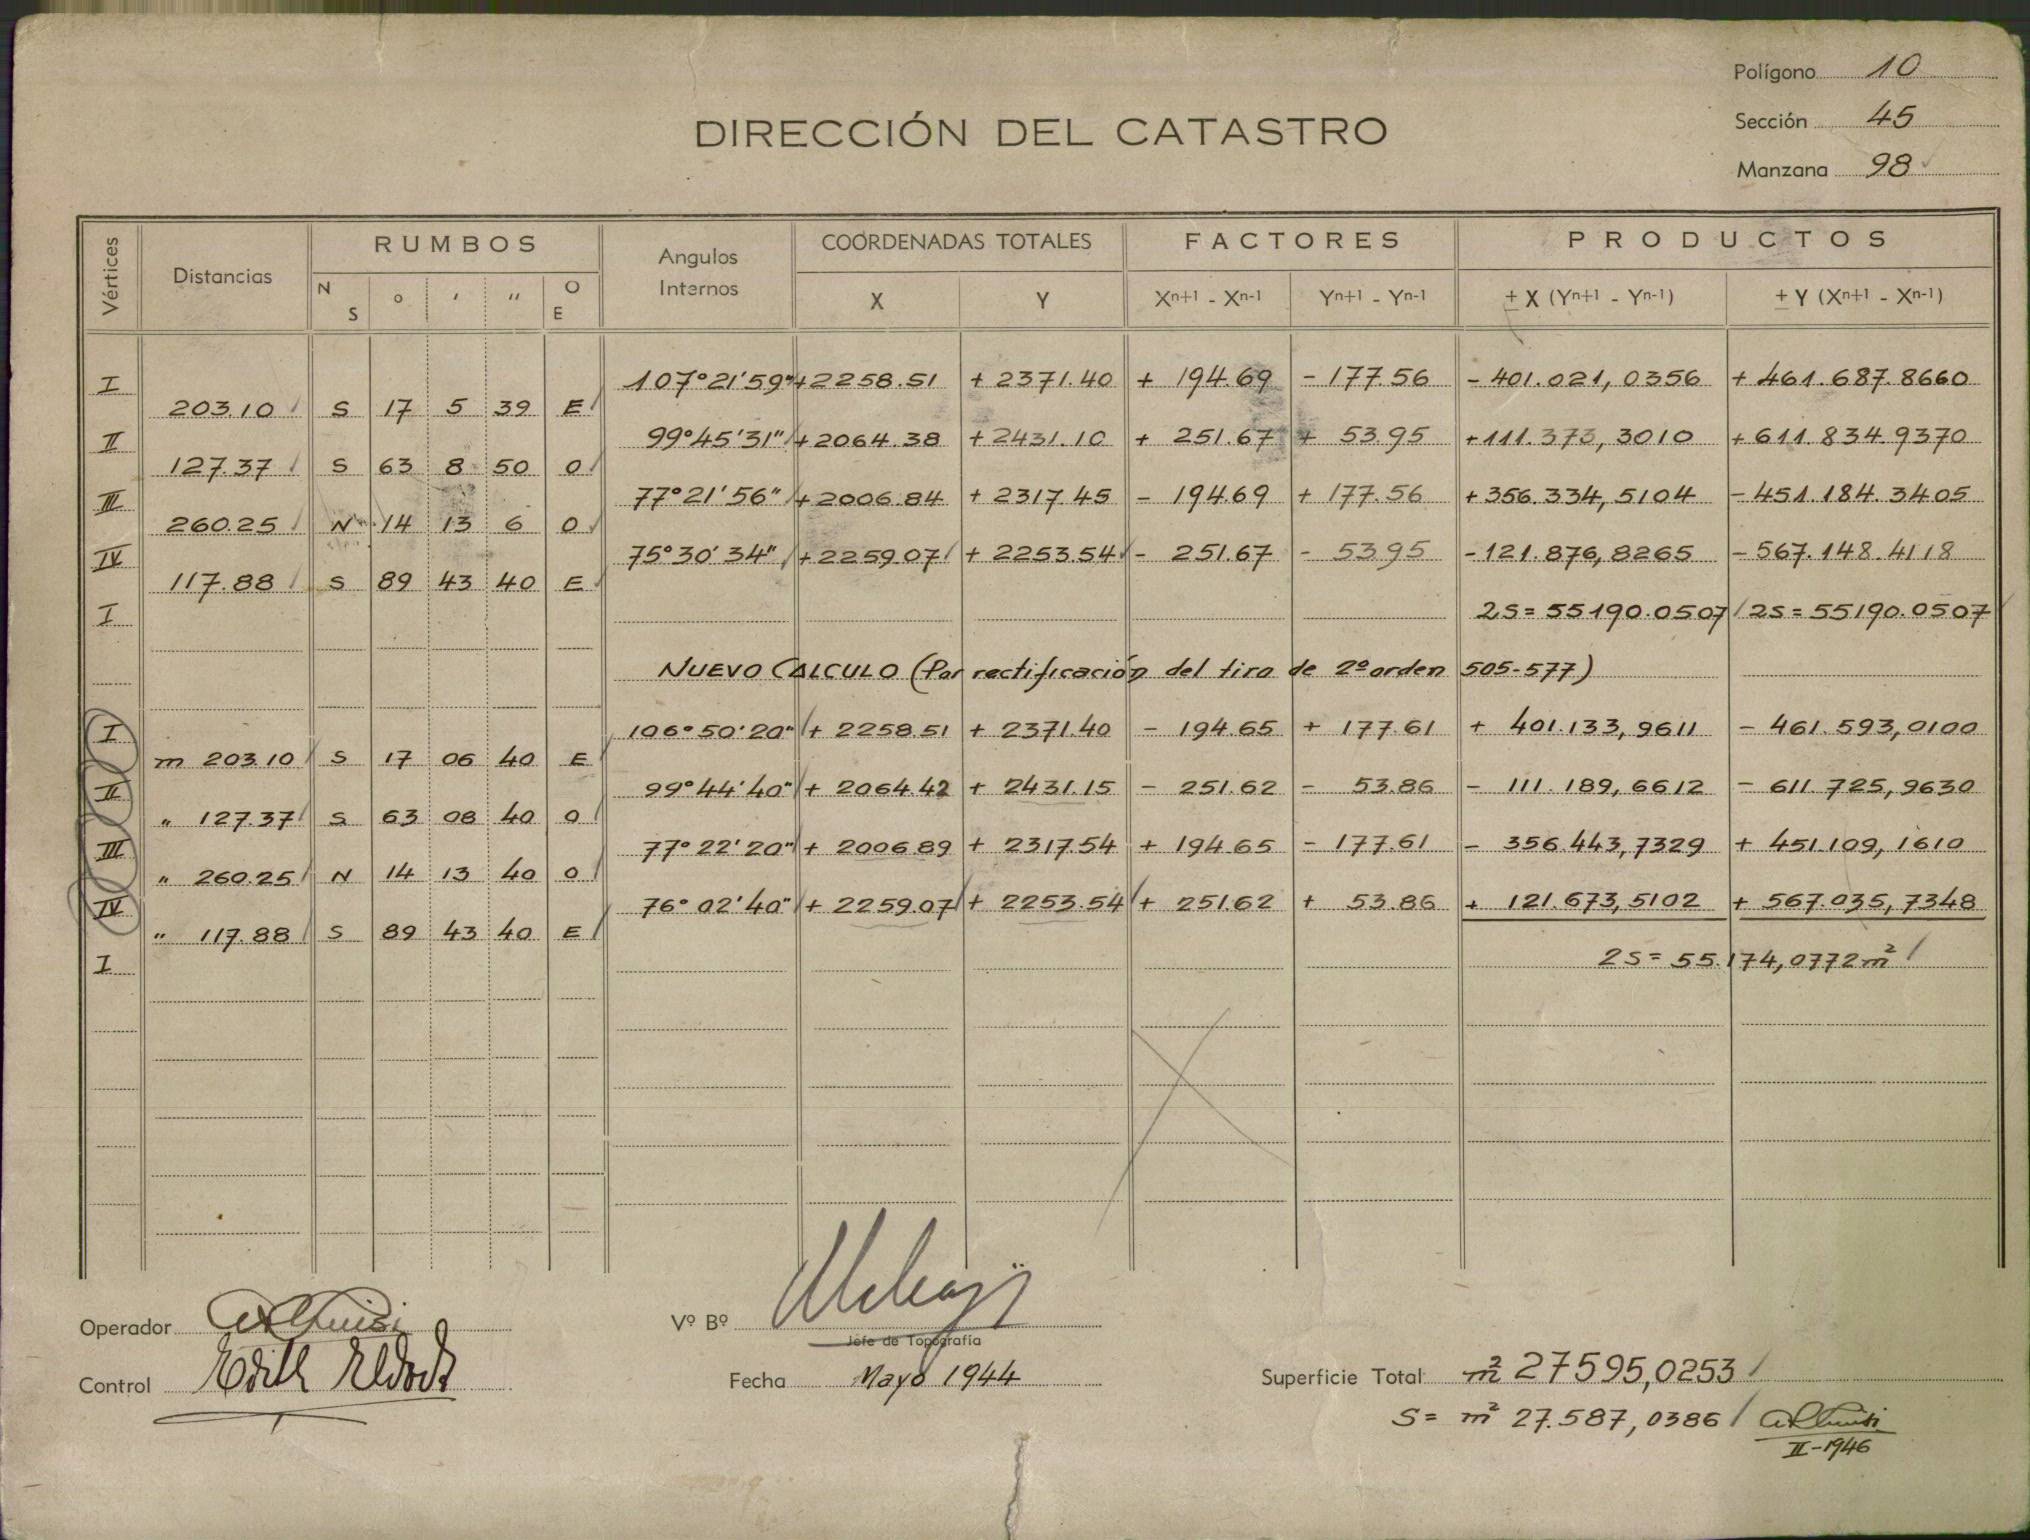 Polígono 10
Sección 45
Manzana 98
DIRECCIÓN DEL CATASTRO
Vértices Distancias RUMBOS Angulos Internos COORDENADAS TOTALES FACTORES PRODUCTOS
N S ° ' " O E X Y Xn+1 - Xn-1 Yn+1 - Yn-1 ± X (Yn+1 - Yn-1) ± Y (Xn+1 - Xn-1)
I 107°21'59" +2258.51 +2371.40 + 194.69 - 177.56 - 401.021,0356 + 461.687.8660
203.10 S 17 5 39 E
II 99°45'31" +2064.38 +2431.10 + 251.67 + 53.95 +111.373,3010 +611.834.9370
127.37 S 63 8 50 O
III 77°21'56" +2006.84 +2317.45 - 194.69 + 177.56 +356.334,5104 -451.184.3405
260.25 N 14 13 6 O
IV 75°30'34" +2259.07 +2253.54 - 251.67 - 53.95 -121.876,8265 -567.148.4118
117.88 S 89 43 40 E
I 2S = 55190.0507 2S = 55190.0507
NUEVO CALCULO (Por rectificación del tiro de 2º orden 505-577)
I 106°50'20" + 2258.51 + 2371.40 - 194.65 + 177.61 + 401.133,9611 - 461.593,0100
m 203.10 S 17 06 40 E
II 99°44'40" + 2064.42 + 2431.15 - 251.62 - 53.86 - 111.189,6612 - 611.725,9630
" 127.37 S 63 08 40 O
III 77°22'20" + 2006.89 + 2317.54 + 194.65 - 177.61 - 356.443,7329 + 451.109,1610
" 260.25 N 14 13 40 O
IV 76°02'40" + 2259.07 + 2253.54 + 251.62 + 53.86 + 121.673,5102 + 567.035,7348
" 117.88 S 89 43 40 E
I 2S = 55.174,0772 m²
Operador
Vº Bº
Jefe de Topografía
Control
Fecha Mayo 1944
Superficie Total m² 27595,0253
S = m² 27.587,0386
II-1946